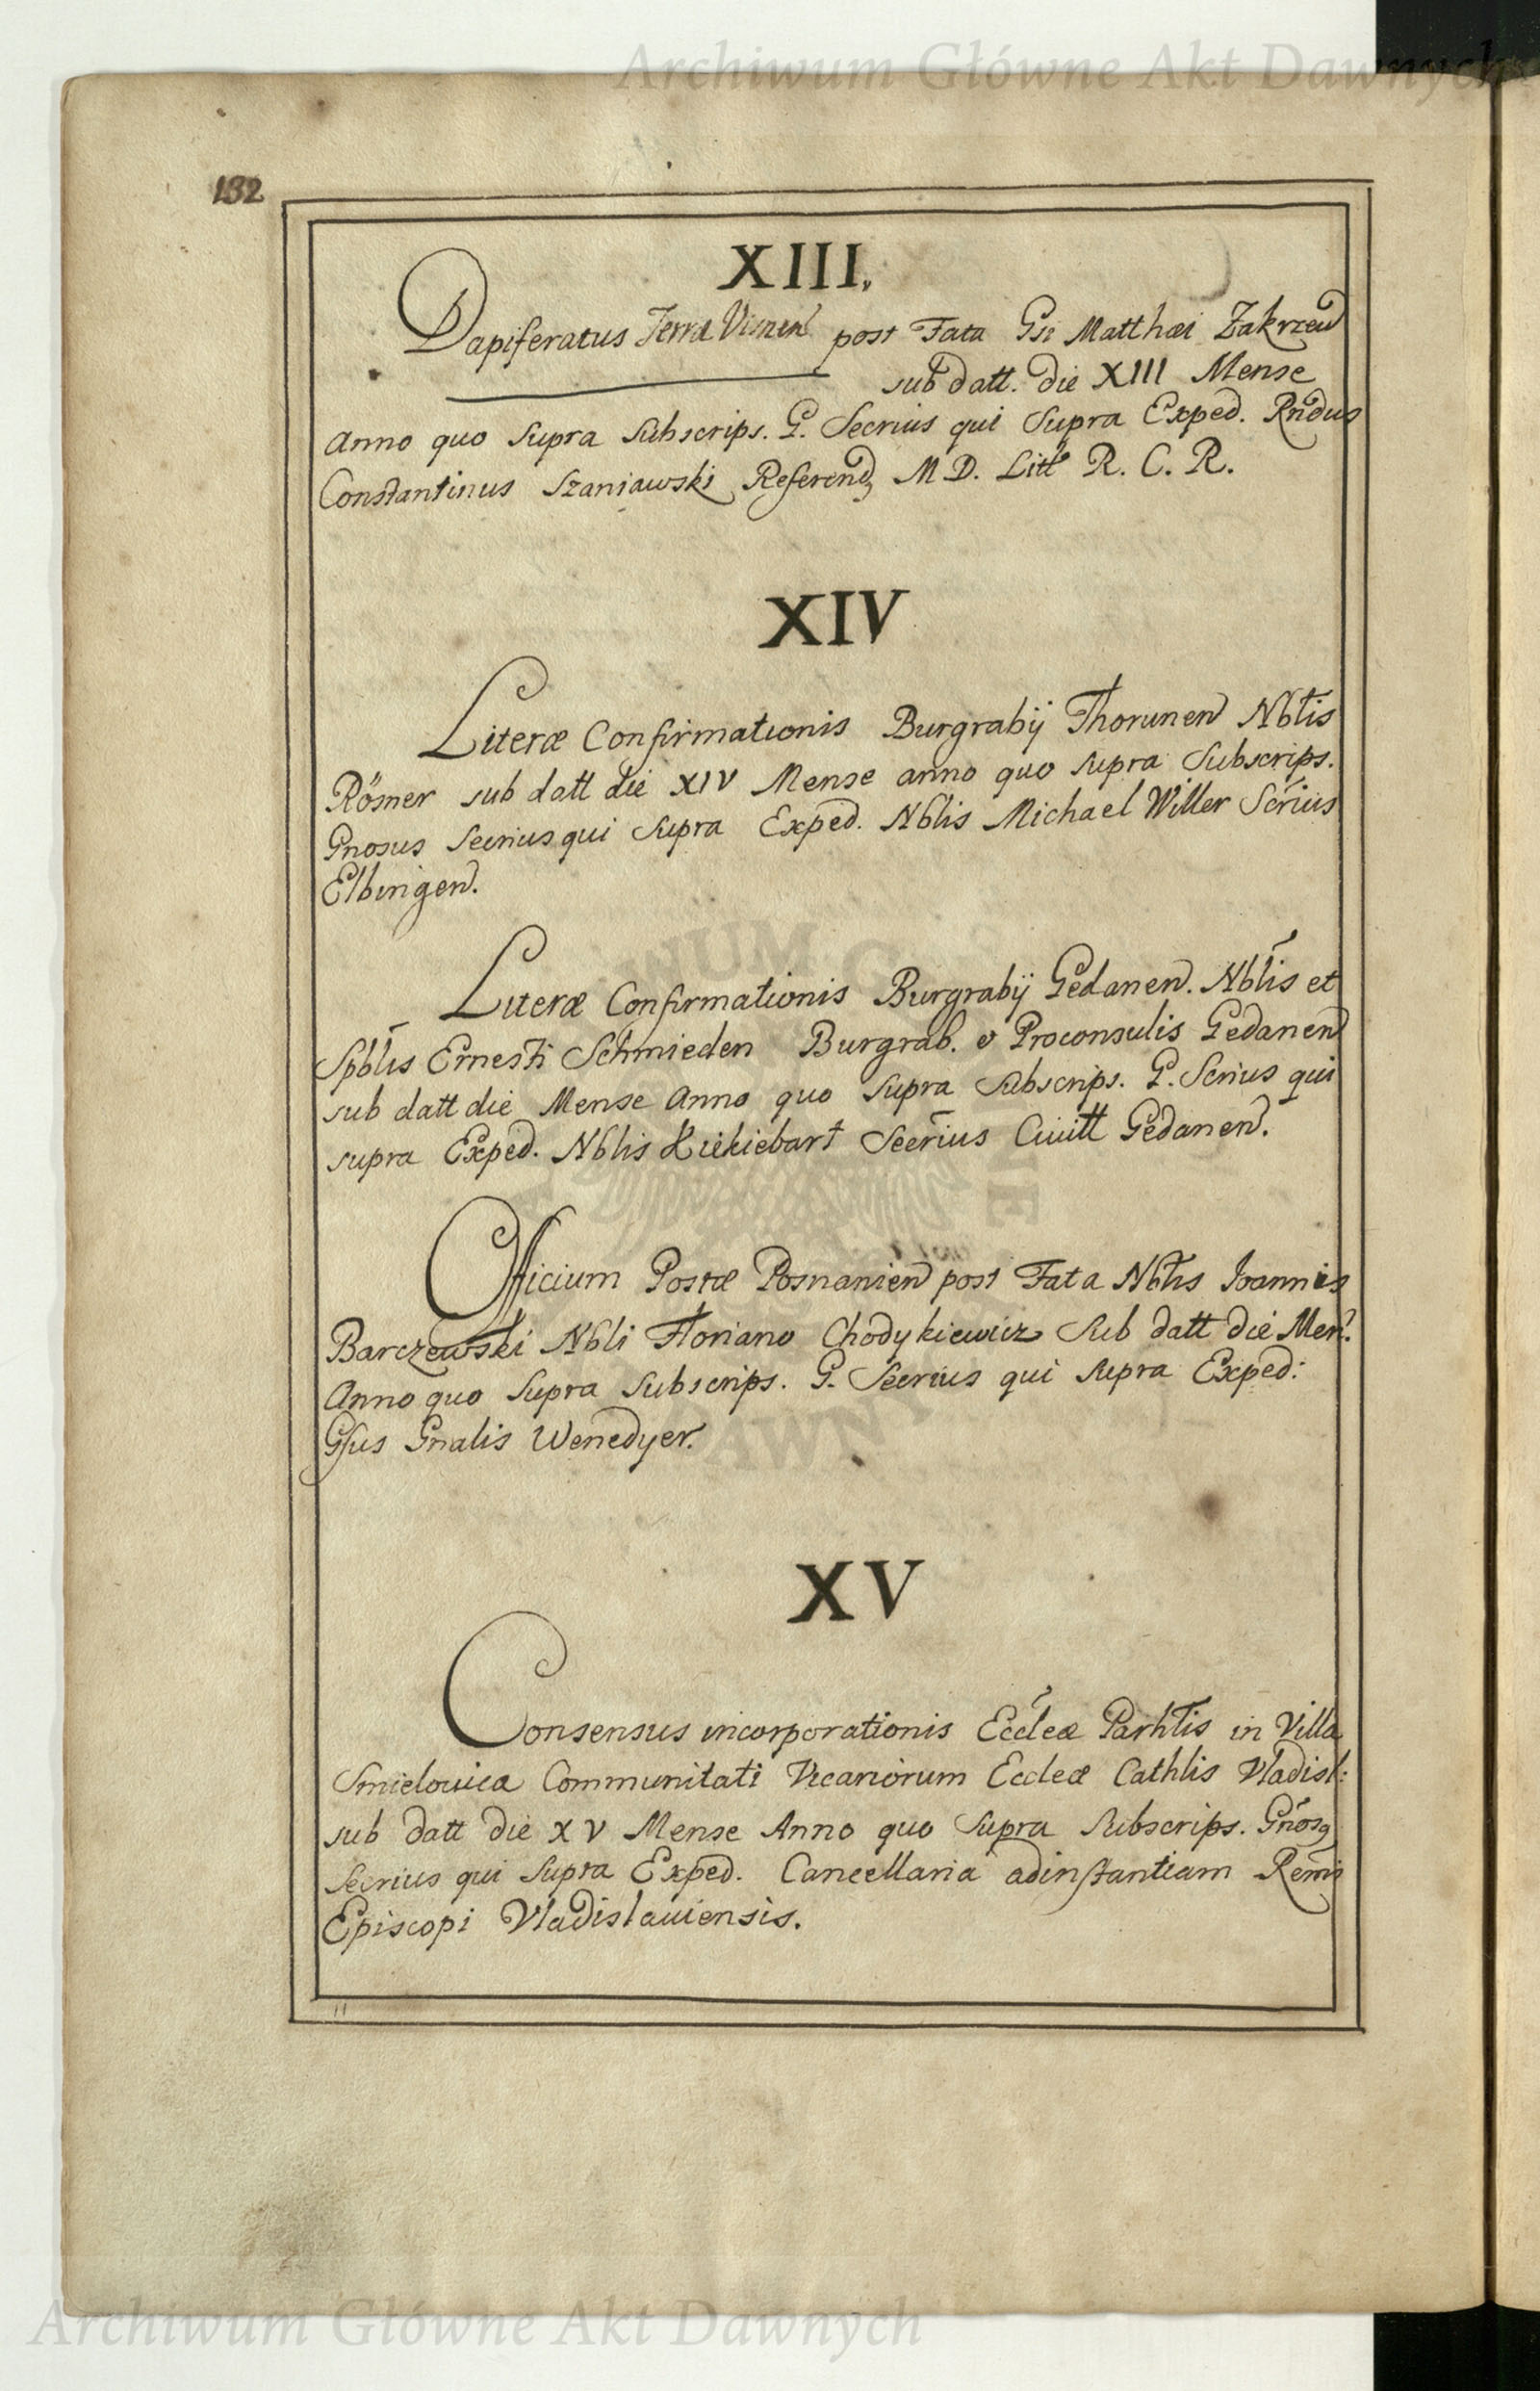 Archiwum Główne Akt Dawnych
132
XIII.
Dapiferatus Terræ Visnen post Fata Gsi Matthæi Zakrzew
sub datt. die XIII Mense
Anno quo supra Subscrips. G. Secrius qui Supra Exped. Rndus
Constantinus Szaniawski Referend M D. Litt R. C. R.
XIV
Literæ Confirmationis Burgrabij Thorunen Nblis
Rösner sub datt die XIV Mense anno quo supra Subscrips.
Gnosus Secrius qui Supra Exped. Nblis Michael Willer Scrius
Elbingen.
Literæ Confirmationis Burgrabij Gedanen. Nblis et
Spblis Ernesti Schmieden Burgrab. & Proconsulis Gedanen
sub datt die Mense Anno quo Supra Subscrips. G. Scrius qui
supra Exped. Nblis Kiekiebart Secrius Civitt Gedanen.
Officium Postæ Posnanien post Fata Nblis Joannis
Barczewski Nbli Floriano Chodykiewicz Sub datt die Men.
Anno quo Supra Subscrips. G. Secrius qui Supra Exped:
Gsus Gnalis Wenedyer.
XV
Consensus incorporationis Eccleæ Parhlis in Villa
Smielovica Communitati Vicariorum Eccleæ Cathlis Vladisl:
sub datt die XV Mense Anno quo Supra Subscrips. Gnosq
Secrius qui Supra Exped. Cancellaria ad instantiam Remi
Episcopi Vladislaviensis.
Archiwum Główne Akt Dawnych